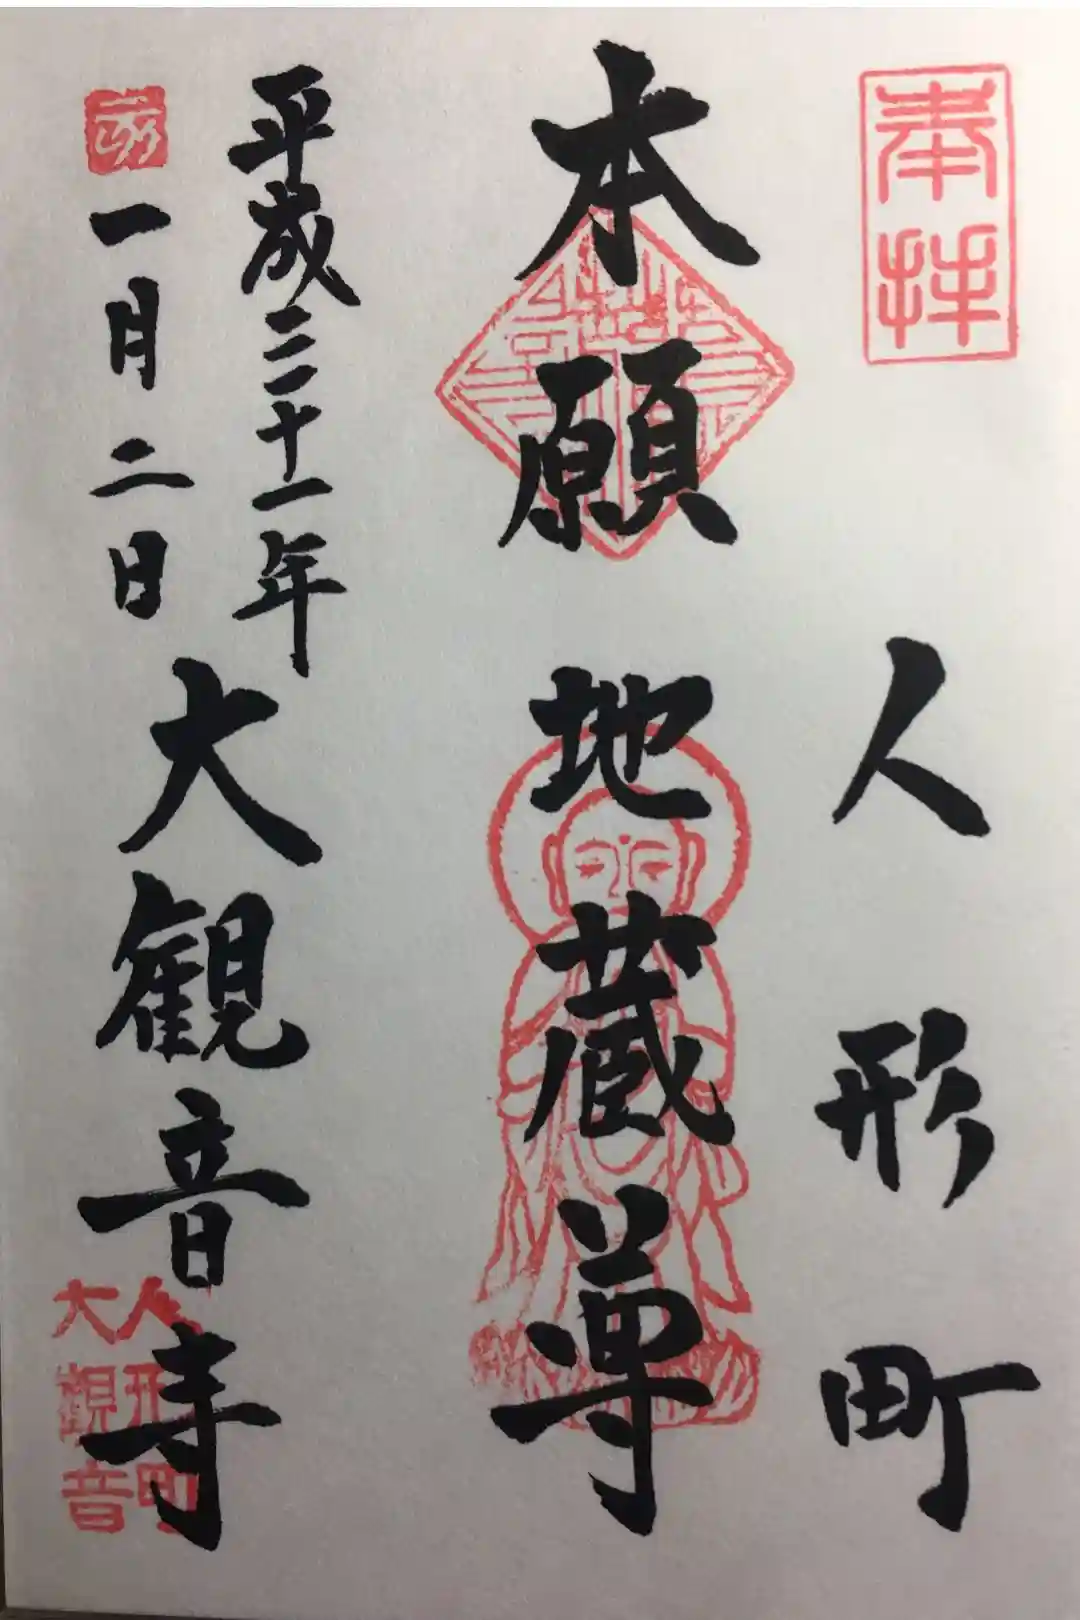 奉拝
人形町
本願地蔵尊
平成三十一年
一月二日
大観音寺
人形町
大観音